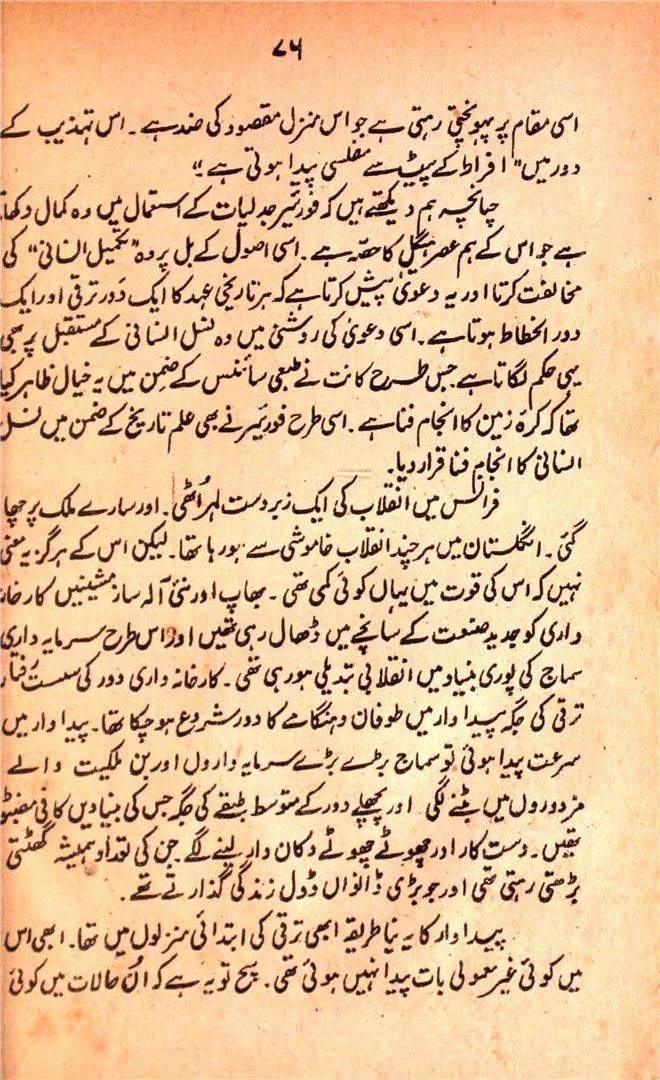 ۷۵
اسی مقام پر پہونچتی رہتی ہے جو اس منزل مقصود کی ضد ہے ۔ اس تہذیب کے
دور میں " افراط کے پیٹ سے مفلسی پیدا ہوتی ہے "
چنانچہ ہم دیکھتے ہیں کہ فورئیر جدلیات کے استعمال میں وہ کمال دکھاتا
ہے جو اس کے ہم عصر ہیگل کا حصّہ ہے ۔ اسی اصول کے بل پر وہ " تکمیل انسانی " کی
مخالفت کرتا اور یہ دعویٰ پیش کرتا ہے کہ ہر تاریخی عہد کا ایک دَور ترقی اور ایک
دور انحطاط ہوتا ہے ۔ اسی دعویٰ کی روشنی میں وہ نسل انسانی کے مستقبل پر بھی
یہی حکم لگاتا ہے جس طرح کانٹ نے طبعی سائنس کے ضمن میں یہ خیال ظاہر کیا
تھا کہ کرہ زمین کا انجام فنا ہے ۔ اسی طرح فورئیر نے بھی علم تاریخ کے ضمن میں نسل
انسانی کا انجام فنا قرار دیا ۔
فرانس میں انقلاب کی ایک زبردست لہر اُٹھی ۔ اور سارے ملک پر چھا
گئی ۔ انگلستان میں ہر چند انقلاب خاموشی سے ہو رہا تھا ۔ لیکن اس کے ہرگز یہ معنی
نہیں کہ اس کی قوت میں یہاں کوئی کمی تھی ۔ بھاپ اور نئی آلہ ساز مشینیں کارخانہ
داری کو جدید صنعت کے سانچے میں ڈھال رہی تھیں اور اس طرح سرمایہ داری
سماج کی پوری بنیاد میں انقلابی تبدیلی ہو رہی تھی ۔ کارخانہ داری دور کی سست رفتار
ترقی کی جگہ پیداوار میں طوفان و ہنگامے کا دور شروع ہو چکا تھا ۔ پیداوار میں
سرعت پیدا ہوئی تو سماج بڑے بڑے سرمایہ داروں اور بن ملکیت والے
مزدوروں میں بٹنے لگی اور پچھلے دور کے متوسط طبقے کی جگہ جس کی بنیادیں کافی مضبوط
تھیں ۔ دست کار اور چھوٹے چھوٹے دکان دار لینے لگے جن کی تعداد ہمیشہ گھٹتی
بڑھتی رہتی تھی اور جو بڑی ڈانواں ڈول زندگی گذارتے تھے ۔
پیداوار کا یہ نیا طریقہ ابھی ترقی کی ابتدائی منزلوں میں تھا ۔ ابھی اس
میں کوئی غیر معمولی بات پیدا نہیں ہوئی تھی ۔ سچ تو یہ ہے کہ اُن حالات میں کوئی